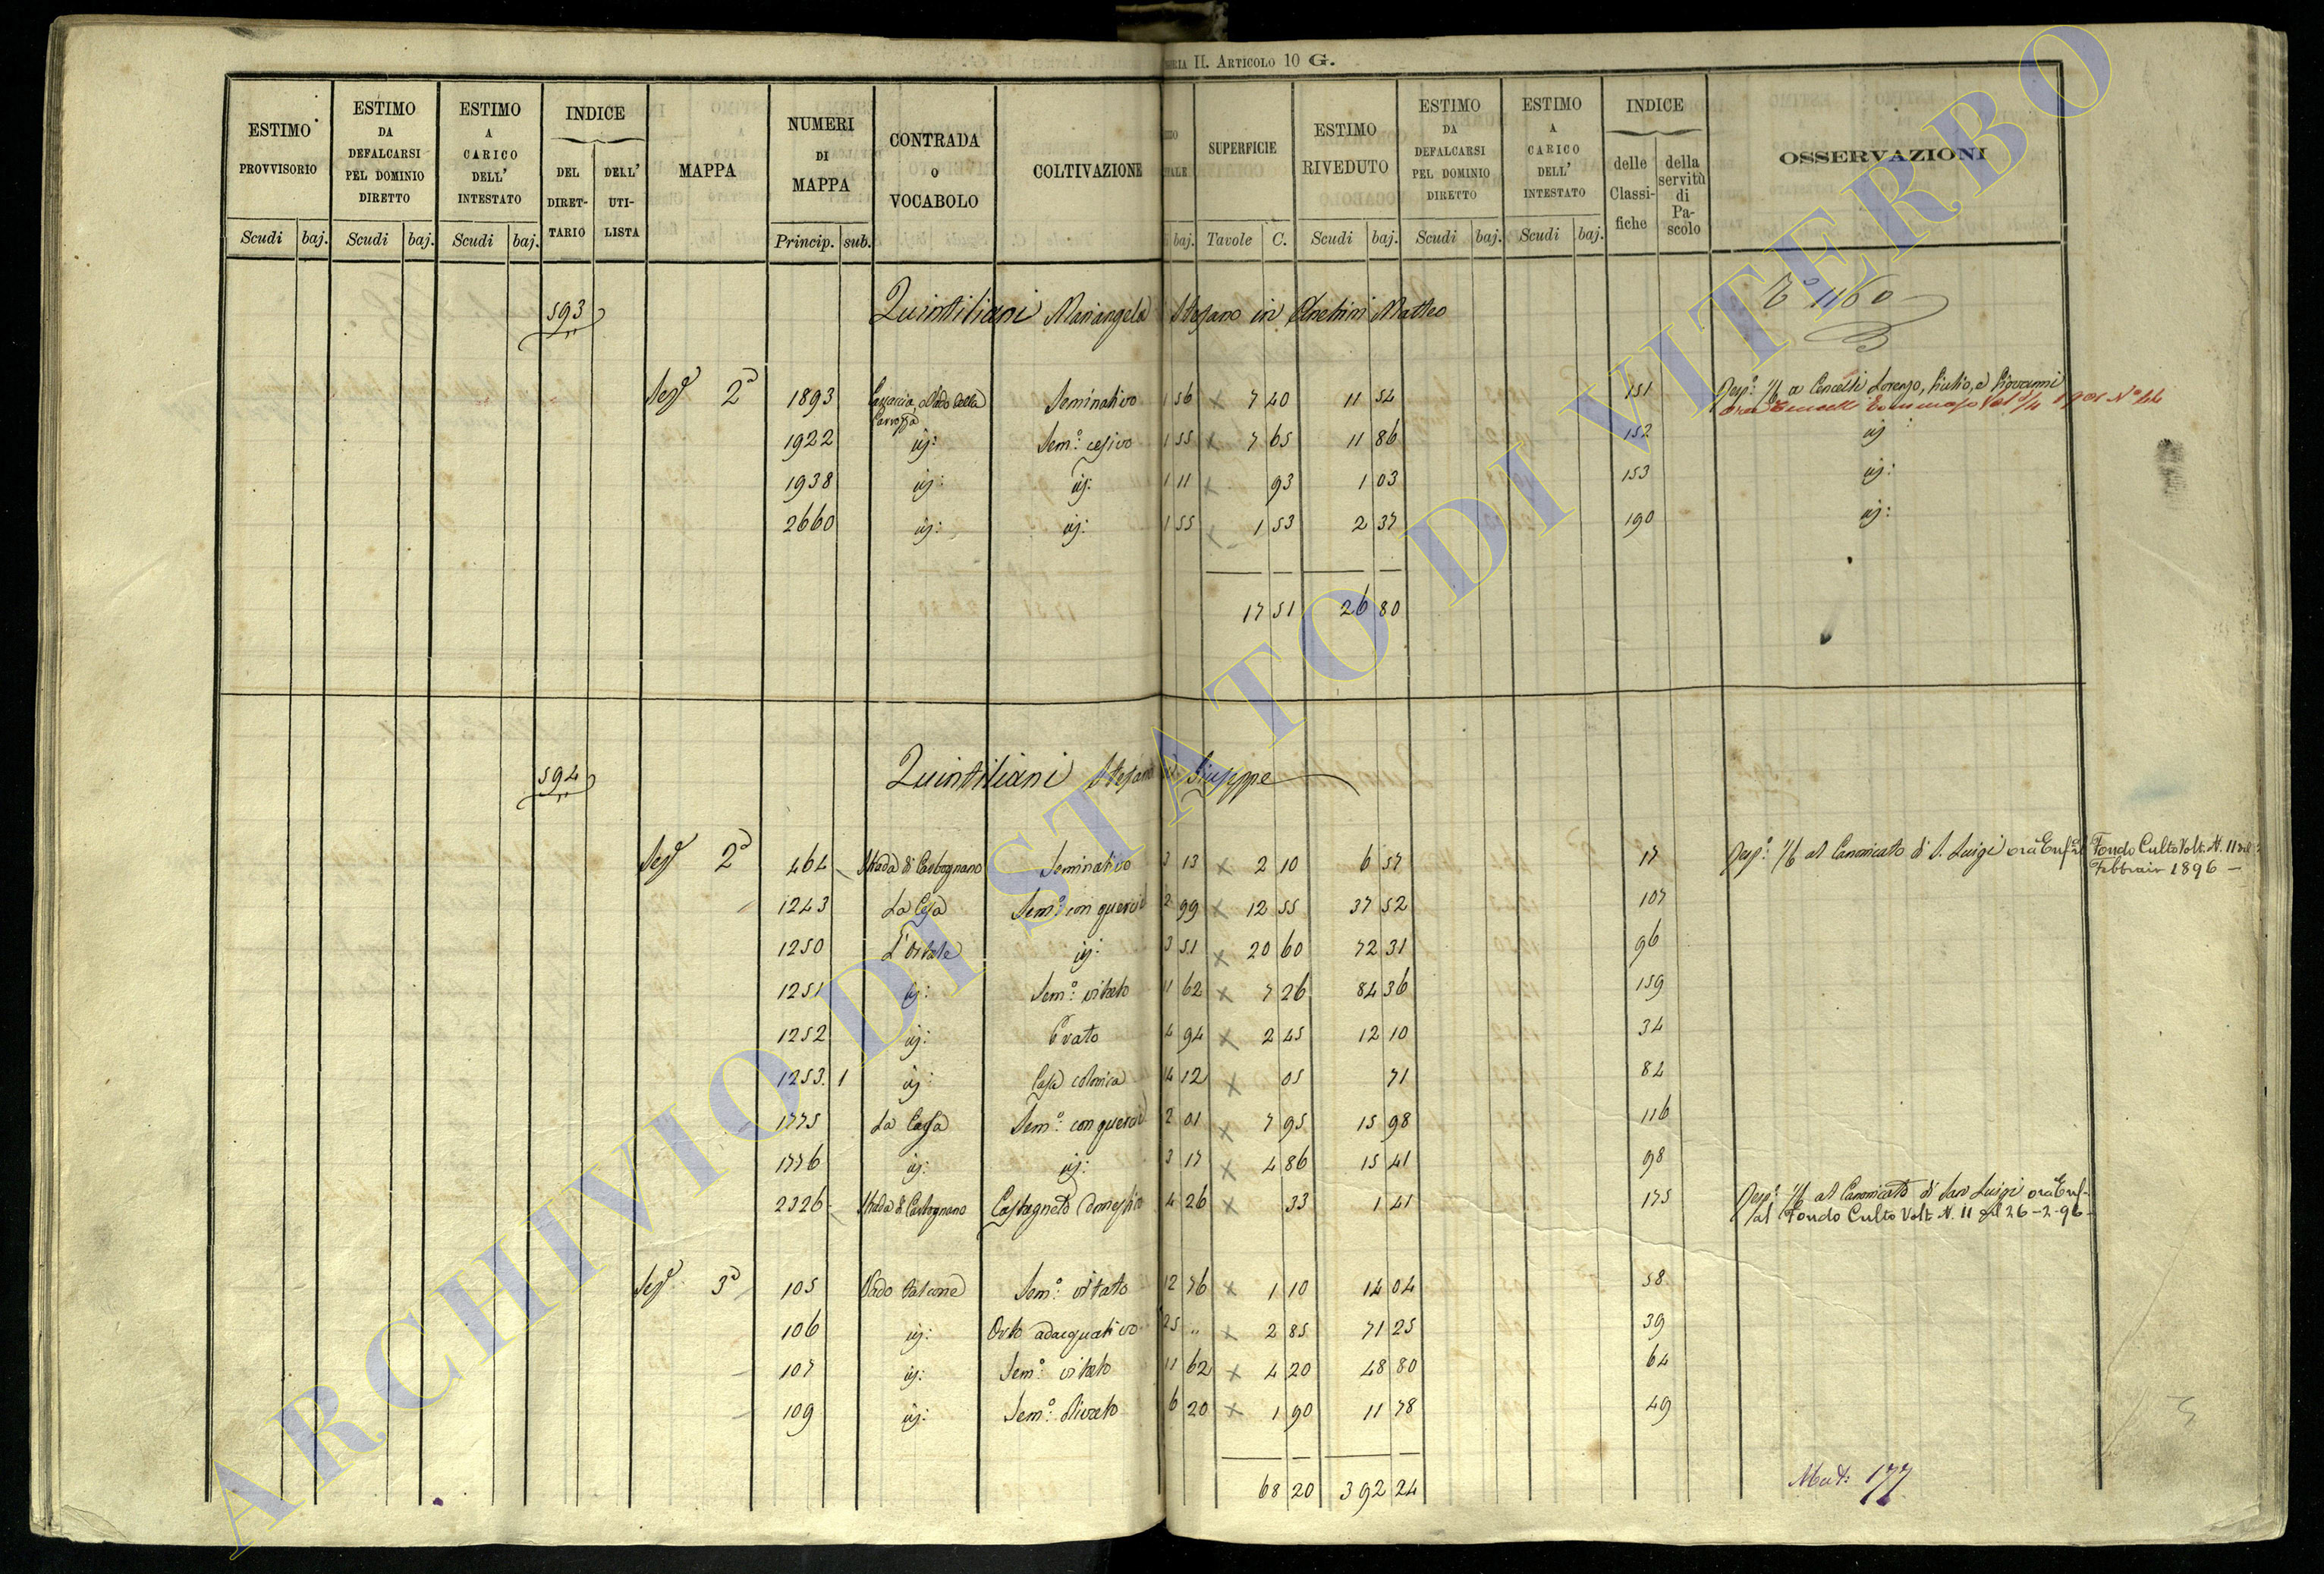 GORIA II. ARTICOLO 10 G.
ESTIMO PROVVISORIO | ESTIMO DA DEFALCARSI PEL DOMINIO DIRETTO | ESTIMO A CARICO DELL' INTESTATO | INDICE DEL DIRET-TARIO | DELL' UTI-LISTA | MAPPA | NUMERI DI MAPPA | CONTRADA O VOCABOLO | COLTIVAZIONE | SUPERFICIE | ESTIMO RIVEDUTO | ESTIMO DA DEFALCARSI PEL DOMINIO DIRETTO | ESTIMO A CARICO DELL' INTESTATO | INDICE delle Classi-fiche | della servitù di Pa-scolo | OSSERVAZIONI
Scudi baj. Scudi baj. Scudi baj. Princip. sub. baj. Tavole C. Scudi baj. Scudi baj. Scudi baj.
593 Quintiliani Mariangela Stefano in Anetrini Matteo 1160
Sezᵉ 2ª 1893 Seminativo 1 56 x 7 40 11 54 151 Resp. 1/6 a Cencelli Lorenzo, Giulio, e Giovanni
1901 Nº 44
1922 iij: Sem.º cesivo 1 55 x 7 65 11 86 152 iij
1938 iij: iij: 1 11 x 93 1 03 153 iij:
2660 iij: iij: 1 55 x 1 53 2 37 190 iij:
17 51 26 80
594 Quintiliani Stefano di Giuseppe
Sezᵉ 2ª 464 Strada di Carbognano Seminativo 3 13 x 2 10 6 57 17 Resp. 1/6 al Canonicato di S. Luigi ora Enf. al Fondo Culto Volt. N. 11 del
Febbraio 1896 -
1243 La Cesa Sem.º con querciè 2 99 x 12 55 37 52 107
1250 L'Ortale iij: 3 51 x 20 60 72 31 96
1251 iij: Sem.º vitato 11 62 x 7 26 84 36 159
1252 iij: Prato 4 94 x 2 45 12 10 34
1253. 1 iij: Casa colonica 14 12 x 05 71 82
1775 La Cesa Sem.º con querciè 2 01 x 7 95 15 98 116
1776 iij: iij: 3 17 x 4 86 15 41 98
2326 Strada di Carbognano Castagneto domestico 4 26 x 33 1 41 175 Resp. 1/6 al Canonicato di San Luigi ora Enf.
al Fondo Culto Volt. N. 11 del 26-2-96
Sezᵉ 3ª 105 Vado Falcone Sem.º vitato 12 76 x 1 10 14 04 58
106 iij: Orto adacquativo 25 " x 2 85 71 25 39
107 iij: Sem.º vitato 11 62 x 4 20 48 80 64
109 iij: Sem.º olivato 6 20 x 1 90 11 78 49
68 20 392 24
Mod: 177
ARCHIVIO DI STATO DI VITERBO